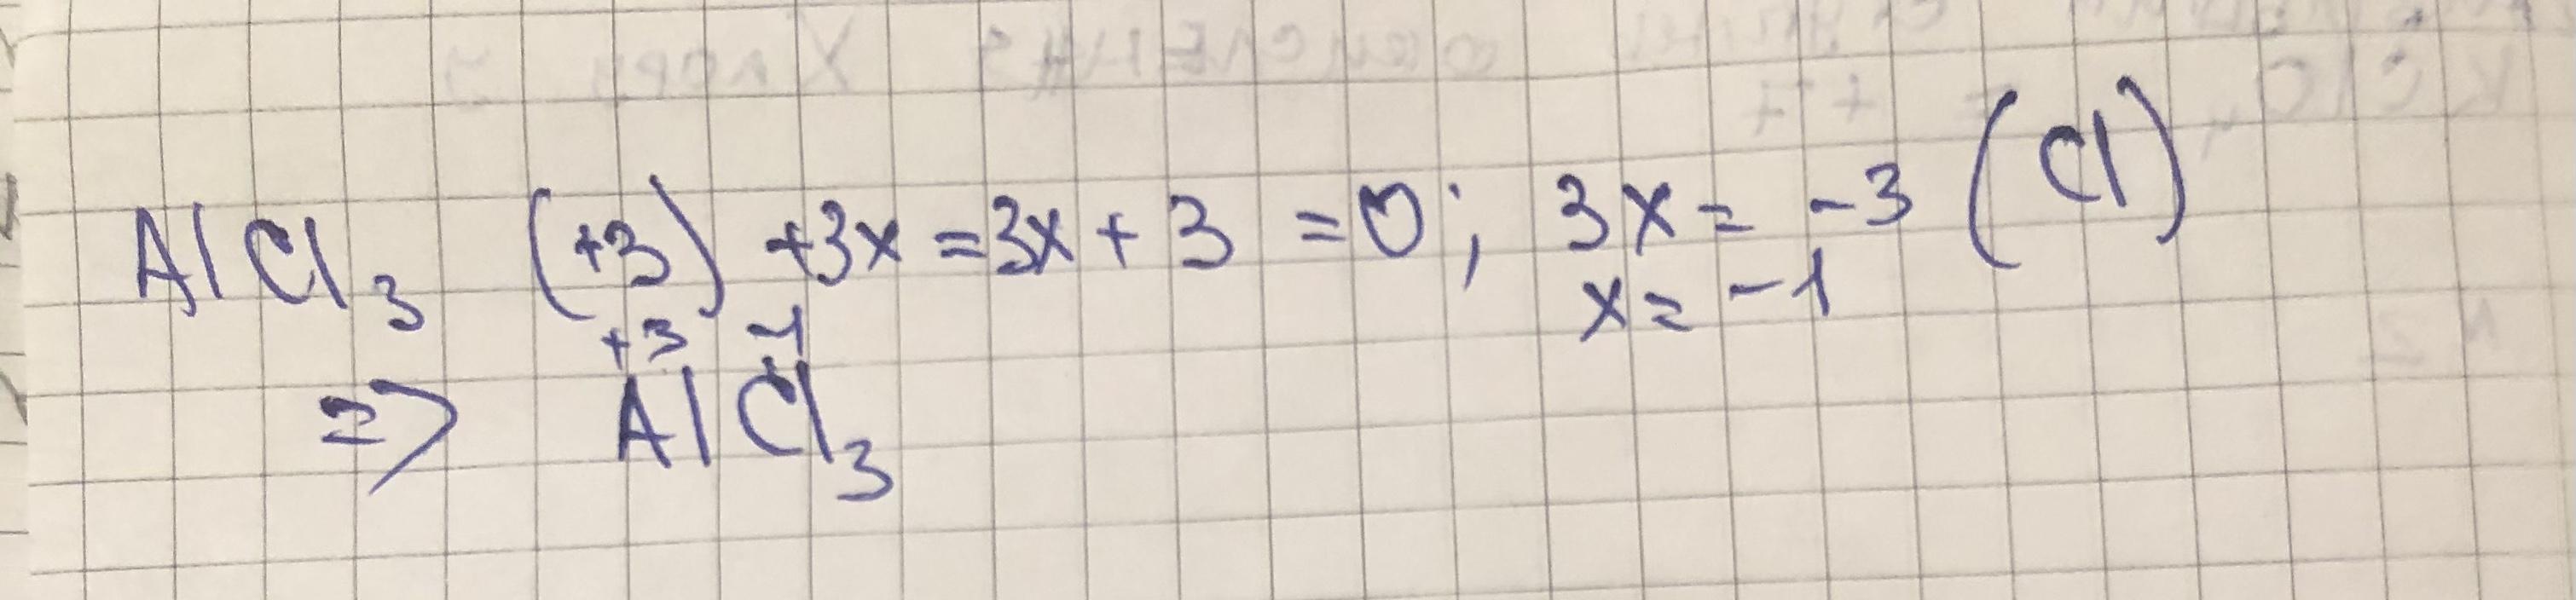 AlCl₃ (+3) +3x = 3x + 3 = 0; 3x = -3 (Cl)
x = -1
+3 -1
=> AlCl₃